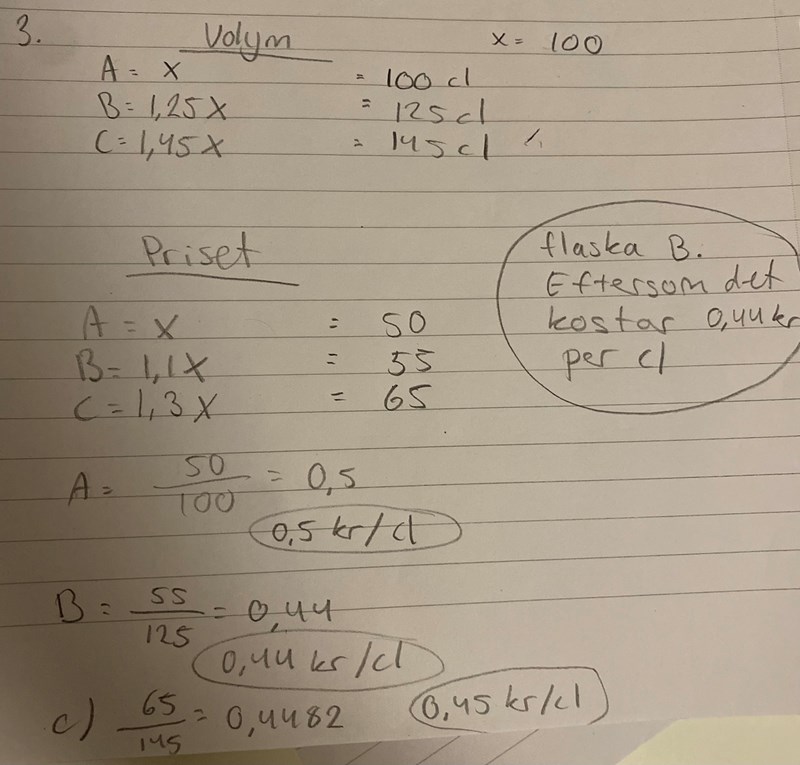 3. Volym x = 100
A = x = 100 cl
B = 1,25x = 125 cl
C = 1,45x = 145 cl
Priset
flaska B.
Eftersom det
kostar 0,44 kr
per cl
A = x = 50
B = 1,1x = 55
C = 1,3x = 65
A = 50/100 = 0,5
0,5 kr/cl
B = 55/125 = 0,44
0,44 kr/cl
c) 65/145 = 0,4482 0,45 kr/cl